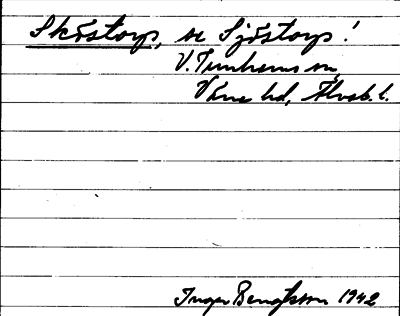 Sköstorp, se Sjöstorp!
V. Tunhems sn,
Väne hd, Älvsb. l.
Inger Bengtsson 1942